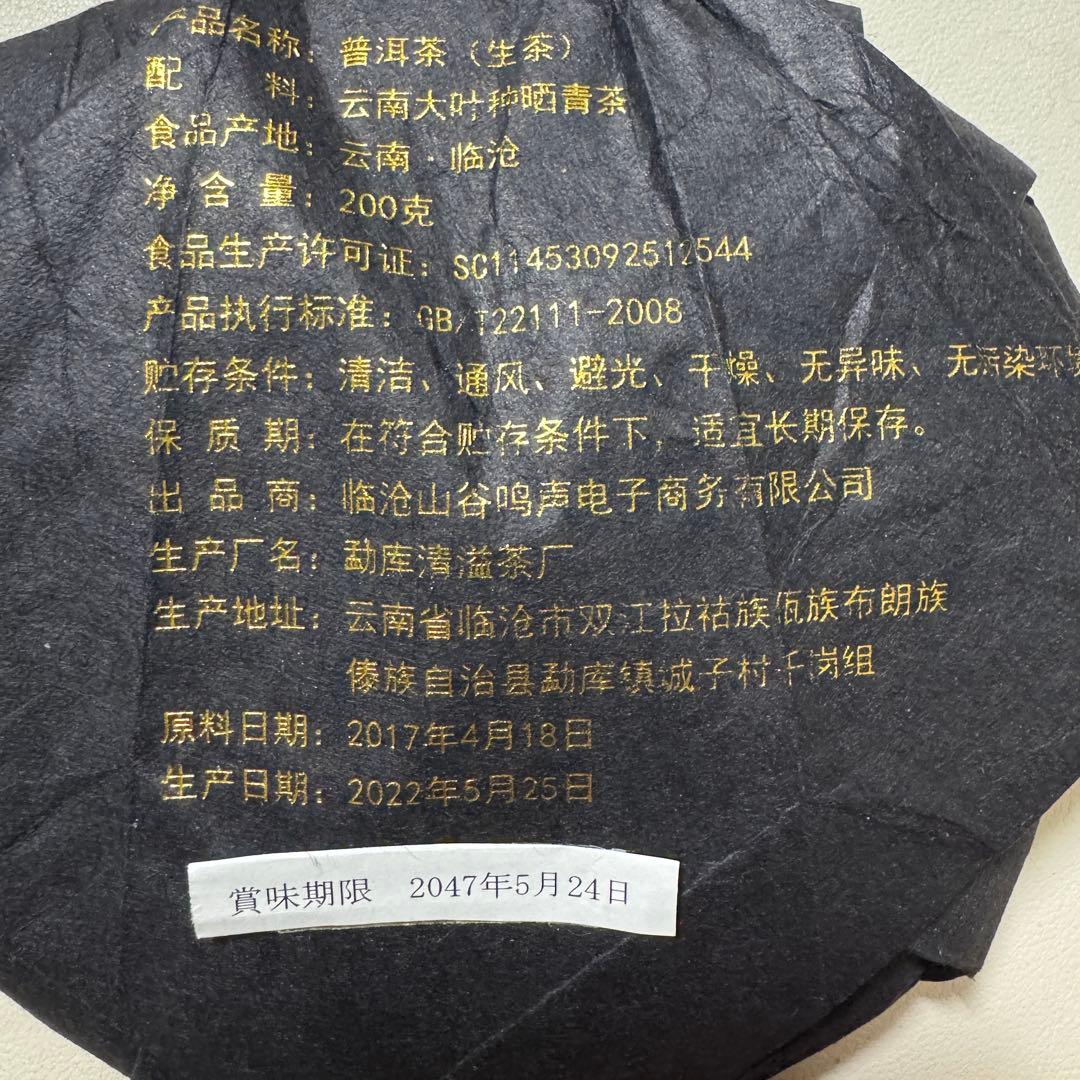 产品名称：普洱茶（生茶）
配 料：云南大叶种晒青茶
食品产地：云南·临沧
净含量：200克
食品生产许可证：SC11453092512544
产品执行标准：GB/T22111-2008
贮存条件：清洁、通风、避光、干燥、无异味、无污染环境
保质期：在符合贮存条件下，适宜长期保存。
出品商：临沧山谷鸣声电子商务有限公司
生产厂名：勐库清溢茶厂
生产地址：云南省临沧市双江拉祜族佤族布朗族
傣族自治县勐库镇诚子村千岗组
原料日期：2017年4月18日
生产日期：2022年5月25日
賞味期限 2047年5月24日